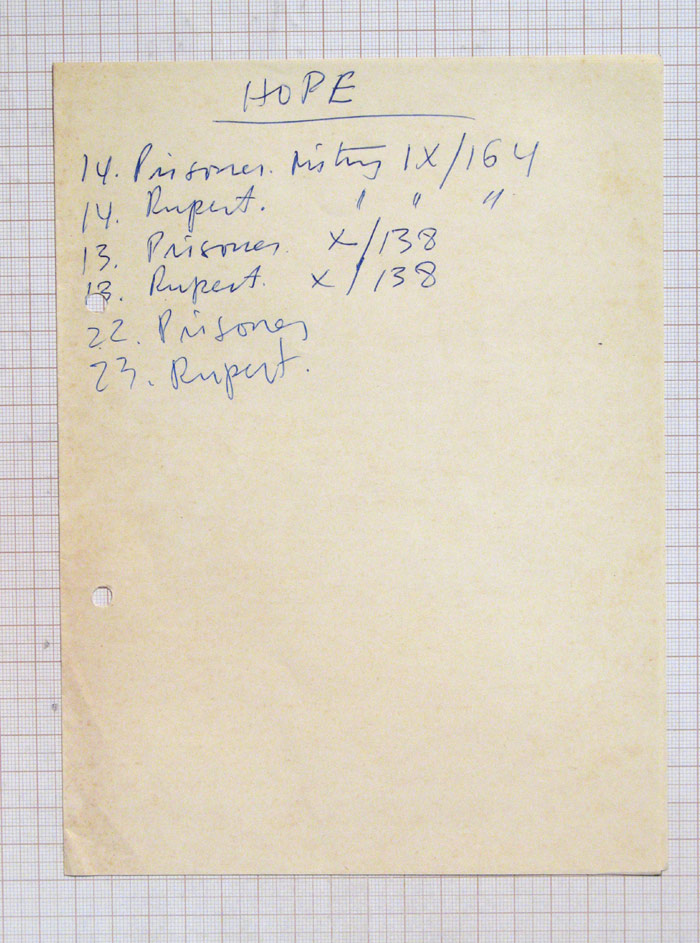 HOPE
14. Prisoner. History IX/164
14. Rupert. " " "
13. Prisoner X/138
13. Rupert. X/138
22. Prisoner
23. Rupert.